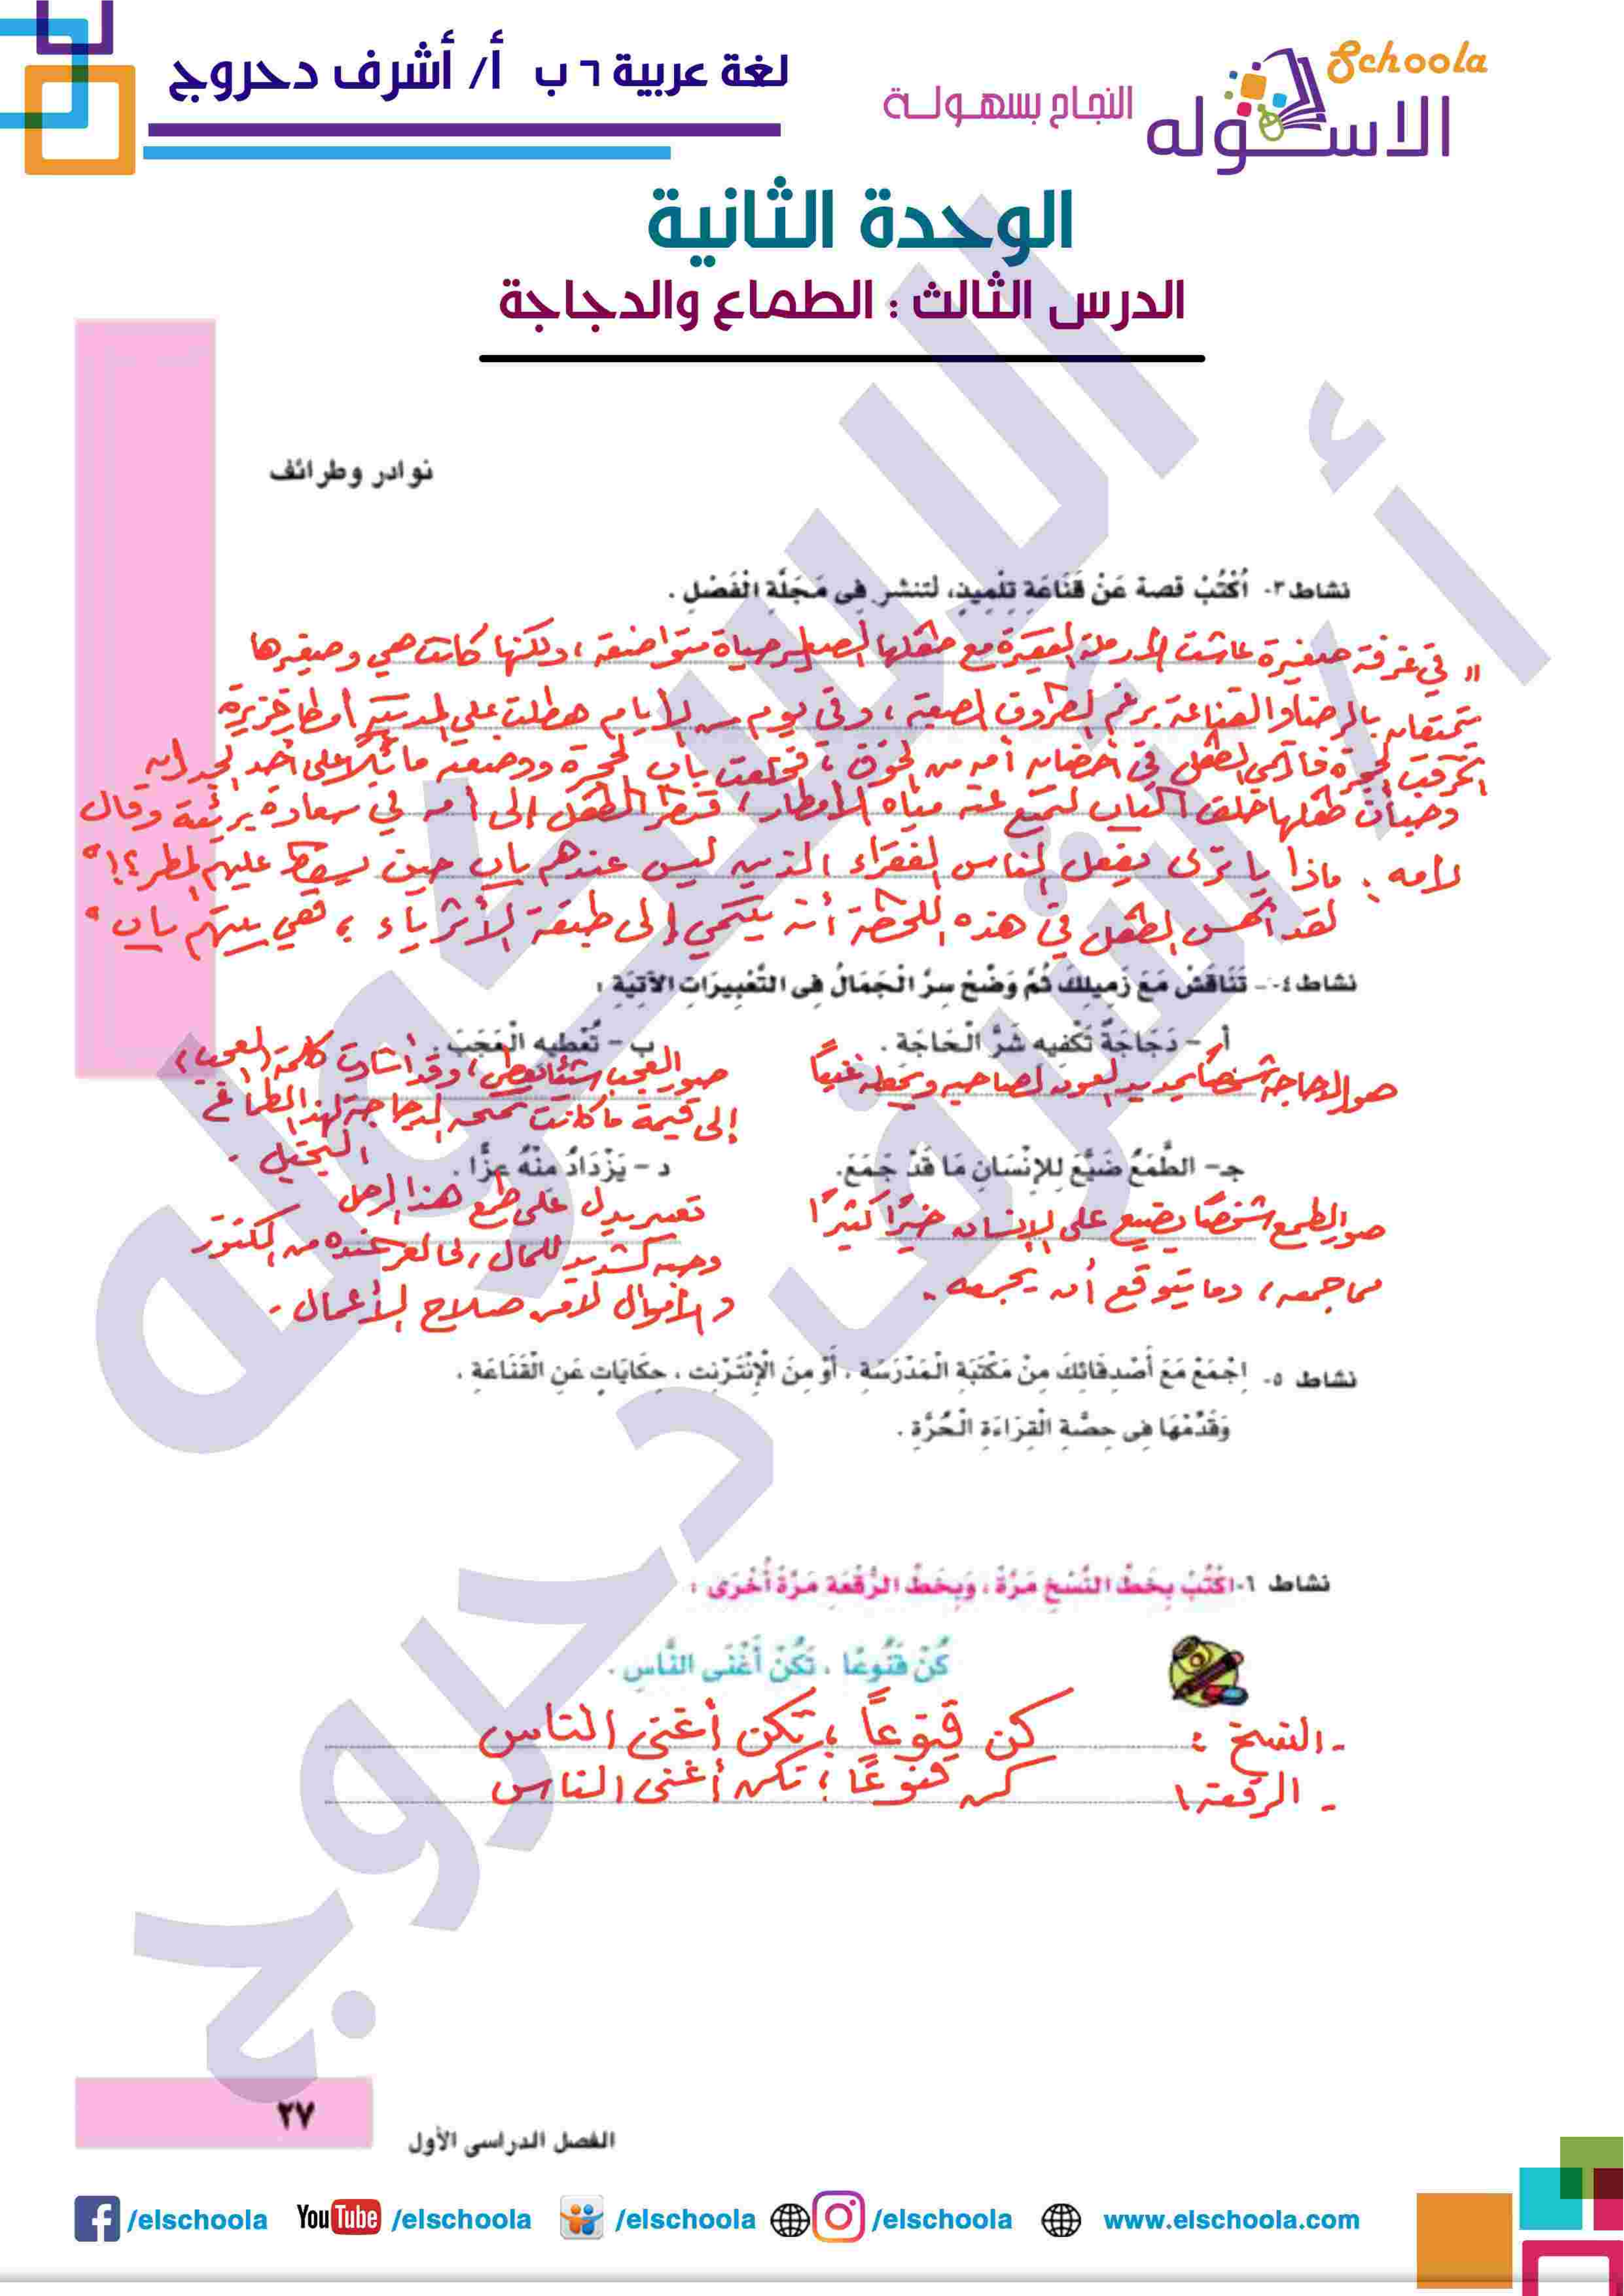 لغة عربية ٦ ب أ/ أشرف دحروج
Schoola
الاسكوله
النجاح بسهولة
الوحدة الثانية
الدرس الثالث : الطماع والدجاجة
نوادر وطرائف
نشاط ٣- اُكْتُبْ قصة عَنْ قَنَاعَةِ تِلْمِيذٍ، لتنشر فِى مَجَلَّةِ الْفَصْلِ .
" في غرفة صغيرة عاشت الأرملة الفقيرة مع طفلها الصغير حياة متواضعة ، ولكنها كانت هي وصغيرها
يتمتعان بالرضا والقناعة برغم الظروف الصعبة ، وفي يوم من الأيام هطلت على المدينة أمطار غزيرة
الحجرة فارتمى الطفل في أحضان أمه من الخوف ، فخلعت باب الحجرة ووضعته مائلاً على أحد الجدران
وخبأت طفلها خلف الباب لتمنع عنه مياه الأمطار ، فنظر الطفل إلى أمه في سعادة بريئة وقال
لأمه : ماذا يا ترى يفعل الناس الفقراء الذين ليس عندهم باب حين يسقط عليهم المطر ؟!"
لقد أحس الطفل في هذه اللحظة أنه ينتمي إلى طبقة الأثرياء ، ففي بيتهم باب "
نشاط ٤- تَنَاقَشْ مَعَ زَمِيلِكَ ثُمَّ وَضِّحْ سِرَّ الْجَمَالُ فِى التَّعْبِيرَاتِ الآتِيَةِ :
أ - دَجَاجَةٌ تَكْفِيهِ شَرَّ الْحَاجَةِ .
ب - تُعْطِيهِ الْعَجَبَ .
صور الدجاجة شخصًا يمد يد العون لصاحبه ويجعله غنيًا
صور العجب شيئًا يعطى ، وقد أشارت كلمة (العجب)
إلى قيمة ما كانت تمنحه الدجاجة لهذا الطماع
البخيل .
جـ- الطَّمَعُ ضَيَّعَ لِلإِنْسَانِ مَا قَدْ جَمَعَ.
د - يَزْدَادُ مِنْهُ عِزًّا .
صور الطمع شخصًا يضيع على الإنسان خيرًا كثيرًا
مما جمعه ، وما يتوقع أن يجمعه .
تعبير يدل على طمع هذا الرجل
وحبه الشديد للمال ، فالعز عنده من الكنوز
والأموال لا من صلاح الأعمال .
نشاط ٥- اِجْمَعْ مَعَ أَصْدِقَائِكَ مِنْ مَكْتَبَةِ الْمَدْرَسَةِ ، أَوْ مِنَ الْإِنْتَرْنِت ، حِكَايَاتٍ عَنِ الْقَنَاعَةِ .
وَقَدِّمْهَا فِى حِصَّةِ الْقِرَاءَةِ الْحُرَّةِ .
نشاط ٦- اُكْتُبْ بِخَطِّ النَّسْخِ مَرَّةً ، وَبِخَطِّ الرُّقْعَةِ مَرَّةً أُخْرَى :
كُنْ قَنُوعًا ، تَكُنْ أَغْنَى النَّاسِ .
- النسخ : كن قنوعاً ، تكن أغنى الناس
- الرقعة : كن قنوعًا ، تكن أغنى الناس
٢٧
الفصل الدراسى الأول
/elschoola YouTube /elschoola /elschoola /elschoola www.elschoola.com
أ / أشرف دحروج